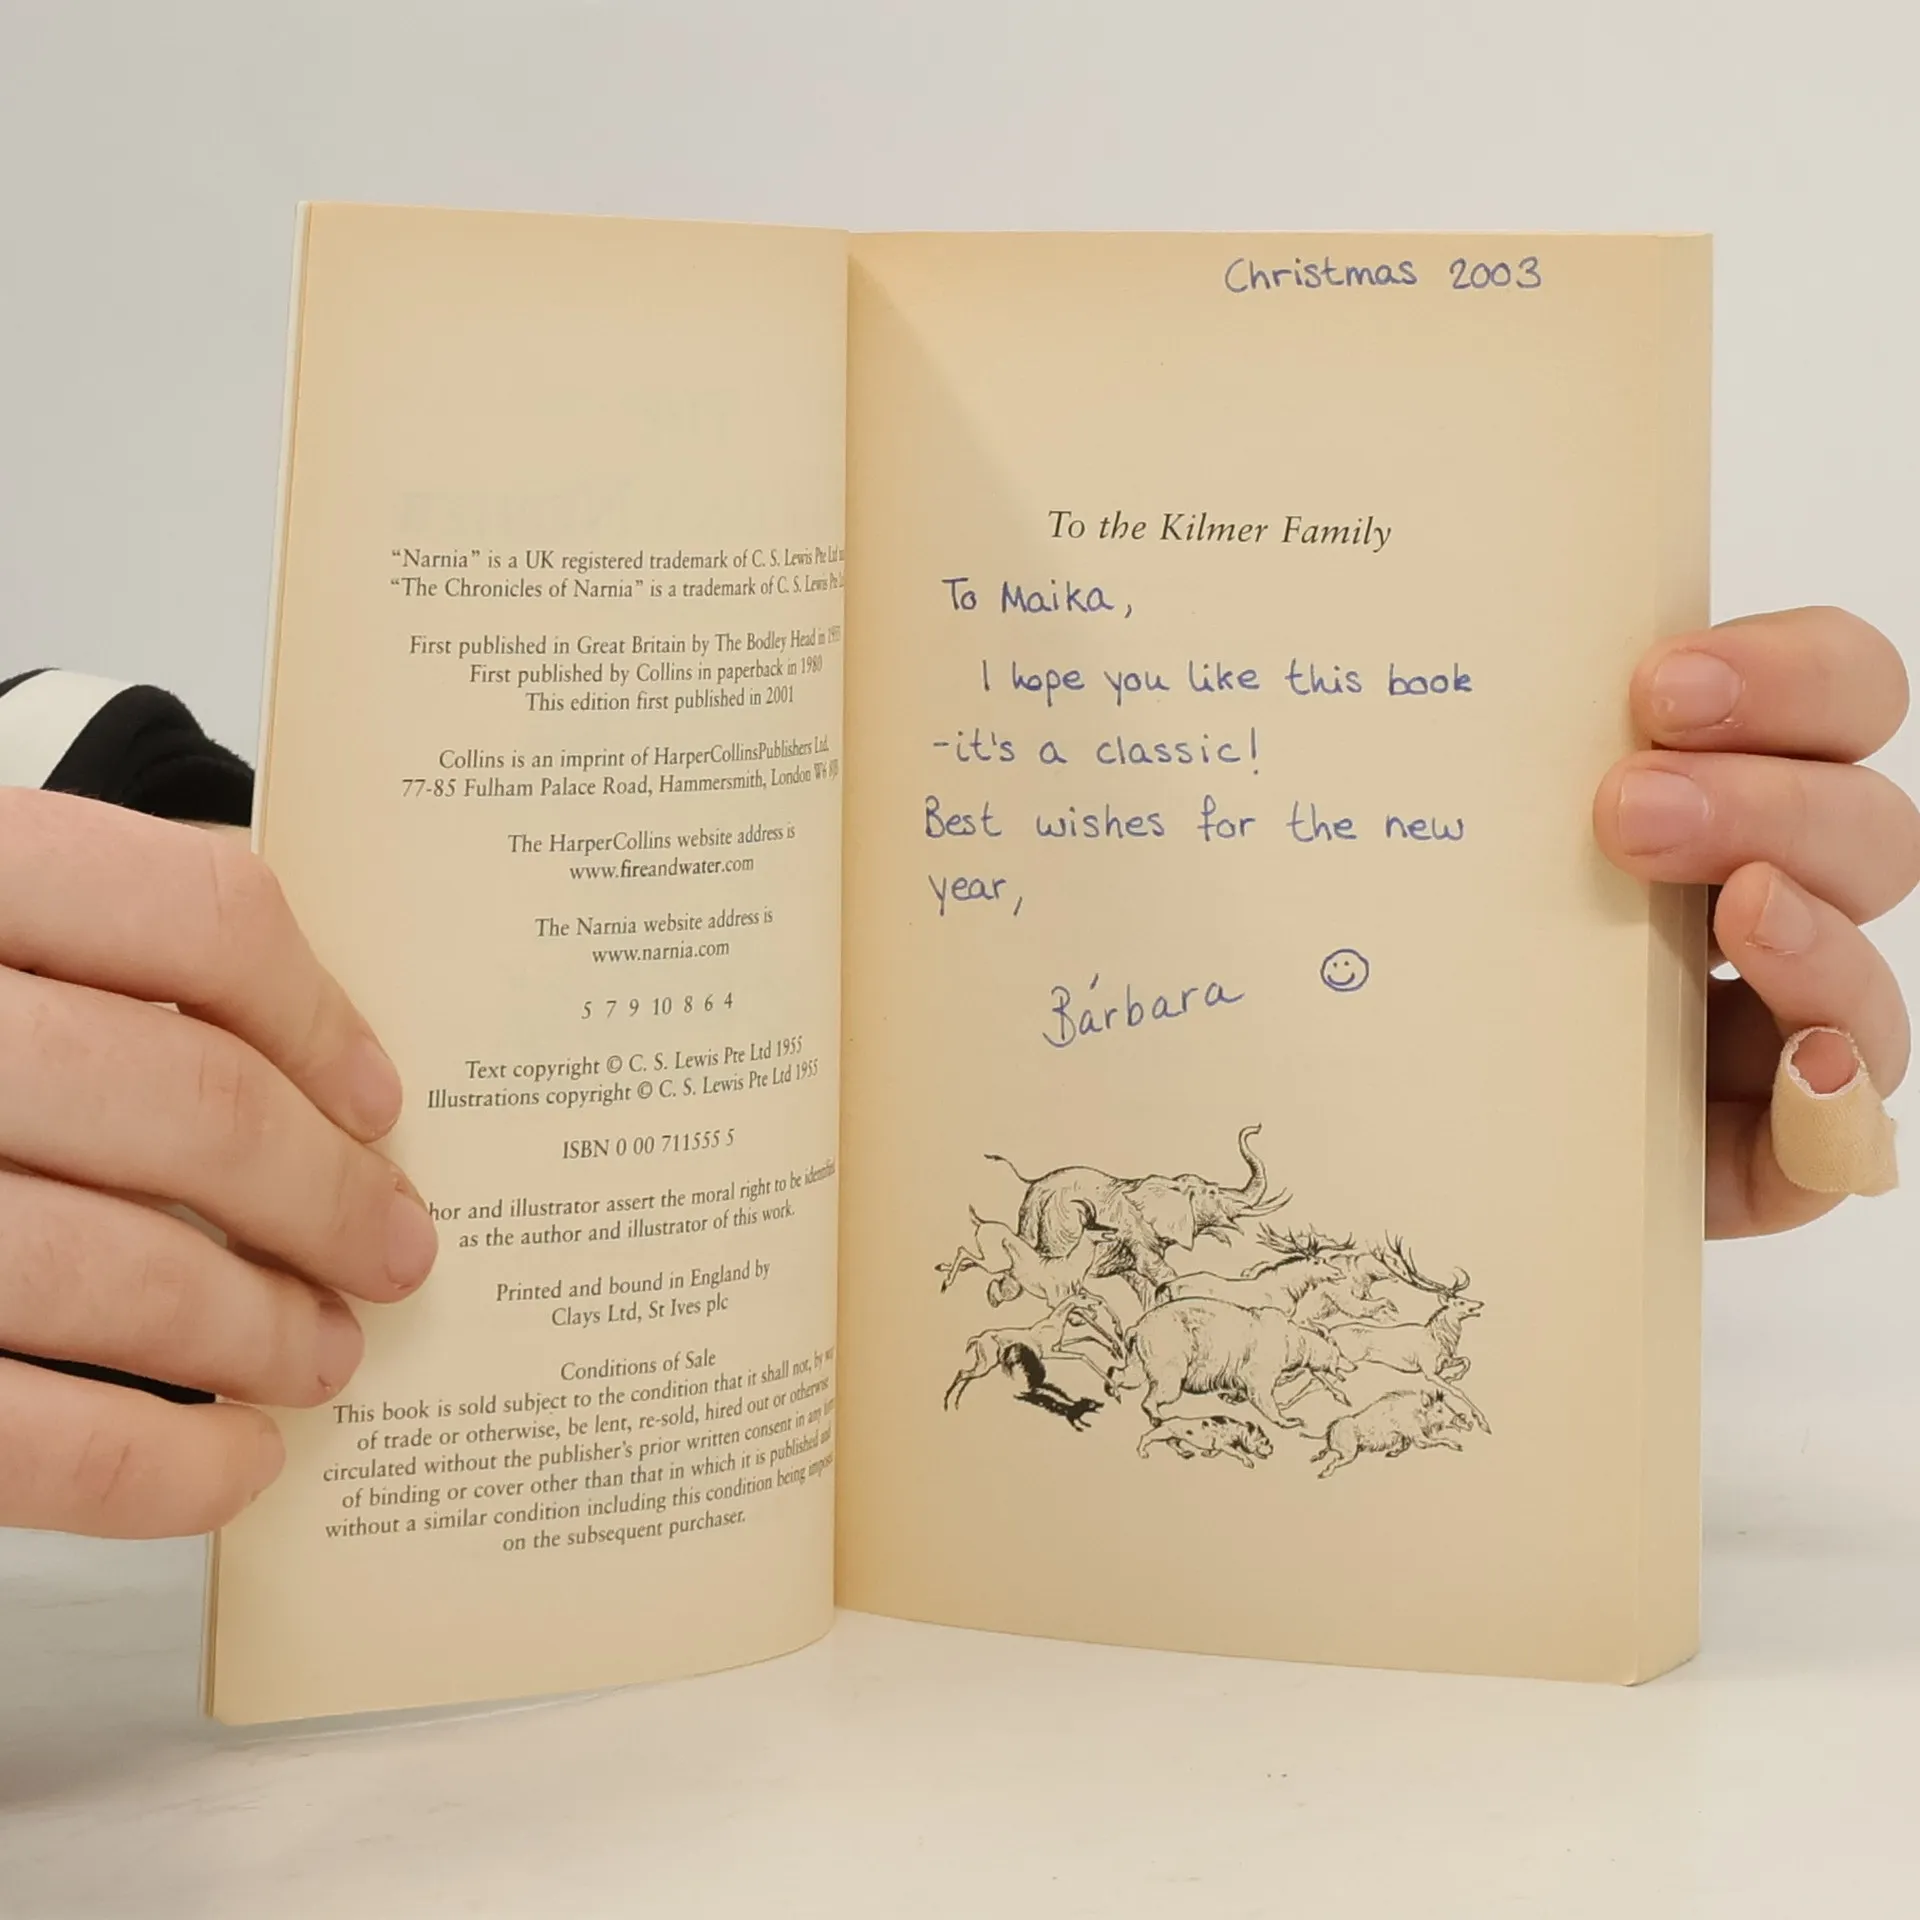 “Narnia” is a UK registered trademark of C. S. Lewis Pte Ltd
“The Chronicles of Narnia” is a trademark of C. S. Lewis Pte
First published in Great Britain by The Bodley Head in 1955
First published by Collins in paperback in 1980
This edition first published in 2001
Collins is an imprint of HarperCollinsPublishers Ltd,
77-85 Fulham Palace Road, Hammersmith, London W6 8JB
The HarperCollins website address is
www.fireandwater.com
The Narnia website address is
www.narnia.com
5 7 9 10 8 6 4
Text copyright © C. S. Lewis Pte Ltd 1955
Illustrations copyright © C. S. Lewis Pte Ltd 1955
ISBN 0 00 711555 5
and illustrator assert the moral right to be identified
as the author and illustrator of this work.
Printed and bound in England by
Clays Ltd, St Ives plc
Conditions of Sale
This book is sold subject to the condition that it shall not, by way
of trade or otherwise, be lent, re-sold, hired out or otherwise
circulated without the publisher's prior written consent in any form
of binding or cover other than that in which it is published and
without a similar condition including this condition being imposed
on the subsequent purchaser.
Christmas 2003
To the Kilmer Family
To Maika,
I hope you like this book
-it's a classic!
Best wishes for the new
year,
Bárbara